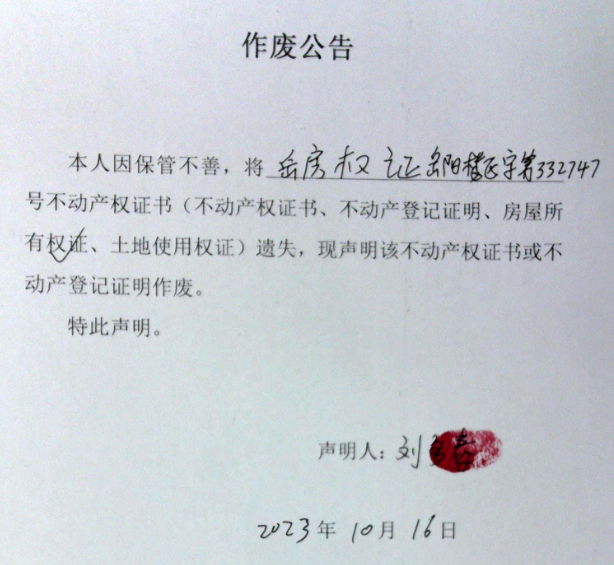 作废公告
本人因保管不善，将 岳房权证岳阳楼区字第332747
号不动产权证书（不动产权证书、不动产登记证明、房屋所
有权证、土地使用权证）遗失，现声明该不动产权证书或不
动产登记证明作废。
特此声明。
声明人：刘
2023年10月16日